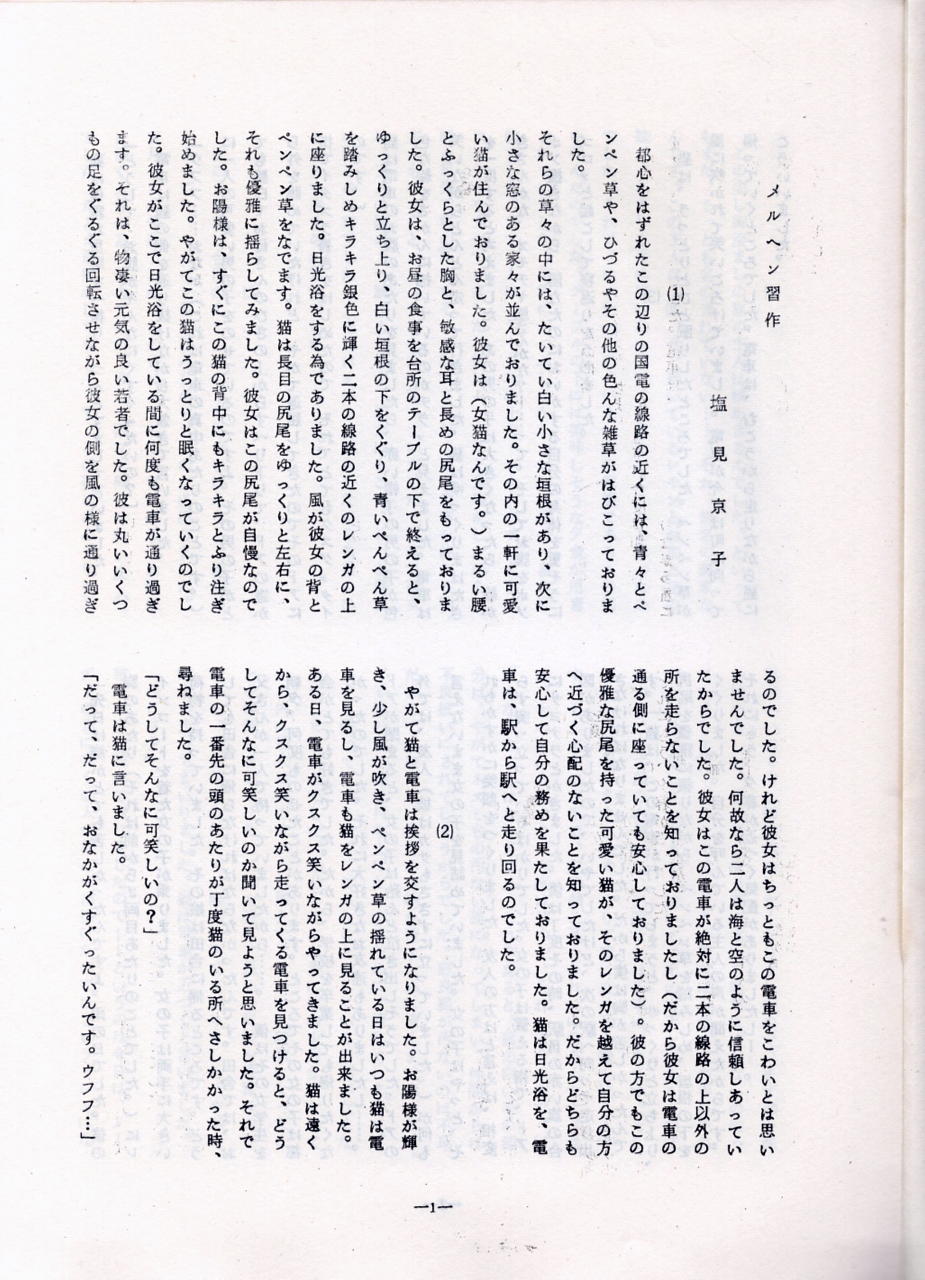 メルヘン習作
塩見京子
(1)
都心をはずれたこの辺りの国電の線路の近くには、青々とペ
ンペン草や、ひづるやその他の色んな雑草がはびこっておりま
した。
それらの草々の中には、たいてい白い小さな垣根があり、次に
小さな窓のある家々が並んでおりました。その内の一軒に可愛
い猫が住んでおりました。彼女は（女猫なんです。）まるい腰
とふっくらとした胸と、敏感な耳と長めの尻尾をもっておりま
した。彼女は、お昼の食事を台所のテーブルの下で終えると、
ゆっくりと立ち上り、白い垣根の下をくぐり、青いぺんぺん草
を踏みしめキラキラ銀色に輝く二本の線路の近くのレンガの上
に座りました。日光浴をする為でありました。風が彼女の背と
ペンペン草をなでます。猫は長目の尻尾をゆっくりと左右に、
それも優雅に揺らしてみました。彼女はこの尻尾が自慢なので
した。お陽様は、すぐにこの猫の背中にもキラキラとふり注ぎ
始めました。やがてこの猫はうっとりと眠くなっていくのでし
た。彼女がここで日光浴をしている間に何度も電車が通り過ぎ
ます。それは、物凄い元気の良い若者でした。彼は丸いいくつ
もの足をぐるぐる回転させながら彼女の側を風の様に通り過ぎ
るのでした。けれど彼女はちっともこの電車をこわいとは思い
ませんでした。何故なら二人は海と空のように信頼しあってい
たからでした。彼女はこの電車が絶対に二本の線路の上以外の
所を走らないことを知っておりましたし（だから彼女は電車の
通る側に座っていても安心しておりました）。彼の方でもこの
優雅な尻尾を持った可愛い猫が、そのレンガを越えて自分の方
へ近づく心配のないことを知っておりました。だからどちらも
安心して自分の務めを果たしておりました。猫は日光浴を、電
車は、駅から駅へと走り回るのでした。
(2)
やがて猫と電車は挨拶を交すようになりました。お陽様が輝
き、少し風が吹き、ペンペン草の揺れている日はいつも猫は電
車を見るし、電車も猫をレンガの上に見ることが出来ました。
ある日、電車がクスクス笑いながらやってきました。猫は遠く
から、クスクス笑いながら走ってくる電車を見つけると、どう
してそんなに可笑しいのか聞いて見ようと思いました。それで
電車の一番先の頭のあたりが丁度猫のいる所へさしかかった時、
尋ねました。
「どうしてそんなに可笑しいの？」
電車は猫に言いました。
「だって、だって、おなかがくすぐったいんです。ウフフ…」
―1―